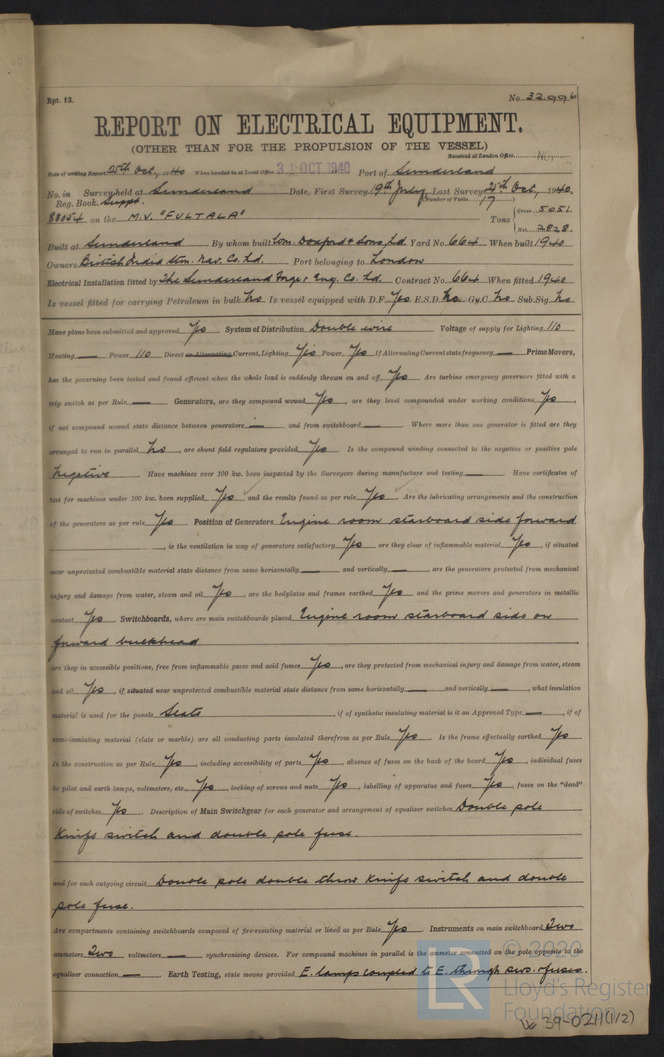 Rpt. 13. No. 32,996
REPORT ON ELECTRICAL EQUIPMENT.
(OTHER THAN FOR THE PROPULSION OF THE VESSEL)
Received at London Office
Date of writing Report 25th Oct. 1940 When handed in at Local Office 31 OCT 1940 Port of Sunderland
No. in Survey held at Sunderland Date, First Survey 19th July Last Survey 25th Oct, 1940.
Reg. Book. Suppt. (Number of Visits 17)
88054 on the M.V. "FULTALA" Tons { Gross 5051
Net 2828.
Built at Sunderland By whom built Wm. Doxford & Sons, Ld. Yard No. 664 When built 1940
Owners British India Stm. Nav. Co. Ld. Port belonging to London
Electrical Installation fitted by The Sunderland Forge & Eng. Co. Ld. Contract No. 664 When fitted 1940
Is vessel fitted for carrying Petroleum in bulk No Is vessel equipped with D.F. Yes E.S.D. No Gy.C. No Sub.Sig. No
Have plans been submitted and approved Yes System of Distribution Double wire Voltage of supply for Lighting 110
Heating — Power 110 Direct or Alternating Current, Lighting Yes Power Yes If Alternating Current state frequency — Prime Movers,
has the governing been tested and found efficient when the whole load is suddenly thrown on and off Yes Are turbine emergency governors fitted with a
trip switch as per Rule — Generators, are they compound wound Yes, are they level compounded under working conditions Yes,
if not compound wound state distance between generators — and from switchboard — Where more than one generator is fitted are they
arranged to run in parallel No, are shunt field regulators provided Yes Is the compound winding connected to the negative or positive pole
Negative Have machines over 100 kw. been inspected by the Surveyors during manufacture and testing — Have certificates of
test for machines under 100 kw. been supplied Yes and the results found as per rule Yes Are the lubricating arrangements and the construction
of the generators as per rule Yes Position of Generators Engine room starboard side forward
, is the ventilation in way of generators satisfactory Yes are they clear of inflammable material Yes, if situated
near unprotected combustible material state distance from same horizontally — and vertically —, are the generators protected from mechanical
injury and damage from water, steam and oil Yes, are the bedplates and frames earthed Yes and the prime movers and generators in metallic
contact Yes Switchboards, where are main switchboards placed Engine room starboard side on
forward bulkhead
are they in accessible positions, free from inflammable gases and acid fumes Yes, are they protected from mechanical injury and damage from water, steam
and oil Yes, if situated near unprotected combustible material state distance from same horizontally — and vertically —, what insulation
material is used for the panels Slate, if of synthetic insulating material is it an Approved Type —, if of
semi-insulating material (slate or marble) are all conducting parts insulated therefrom as per Rule Yes Is the frame effectually earthed Yes
Is the construction as per Rule Yes, including accessibility of parts Yes, absence of fuses on the back of the board Yes, individual fuses
to pilot and earth lamps, voltmeters, etc. Yes locking of screws and nuts Yes, labelling of apparatus and fuses Yes, fuses on the "dead"
side of switches Yes Description of Main Switchgear for each generator and arrangement of equaliser switches Double pole
knife switch and double pole fuse.
and for each outgoing circuit Double pole double throw knife switch and double
pole fuse.
Are compartments containing switchboards composed of fire-resisting material or lined as per Rule Yes Instruments on main switchboard Two
ammeters Two voltmeters — synchronising devices. For compound machines in parallel is the ammeter connected on the pole opposite to the
equaliser connection — Earth Testing, state means provided E. lamps coupled to E. through sws. & fuses.
© 2020
LR
Lloyd's Register
Foundation
W 39-0211(1/2)